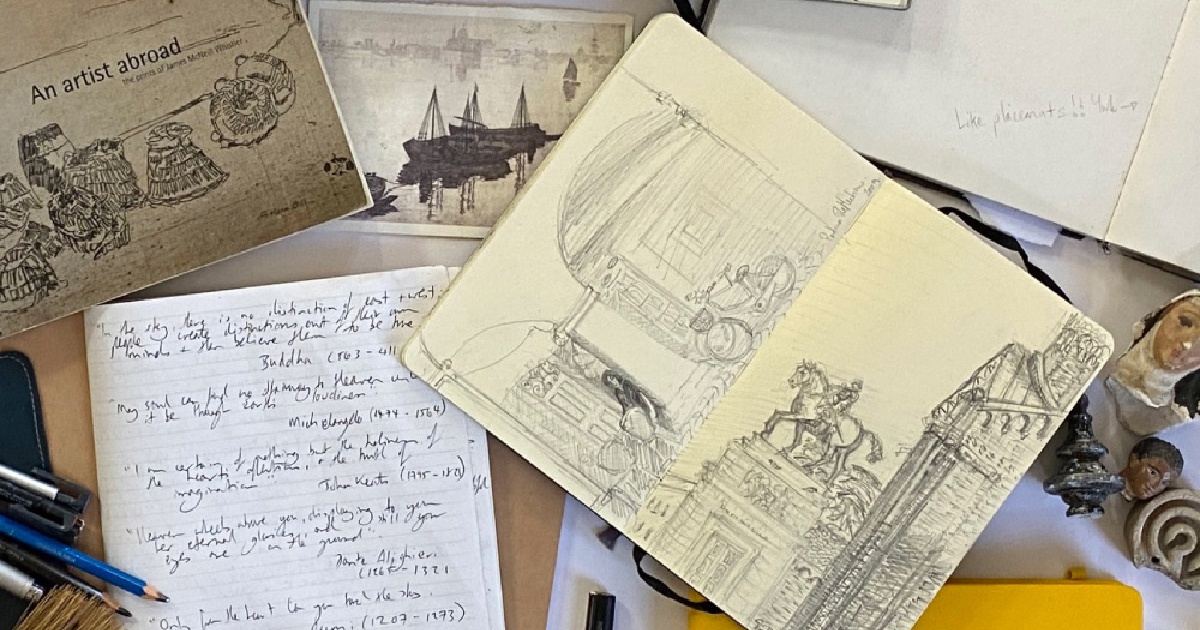 An artist abroad
the prints of James McNeill Whistler
Like placemats!!
"In the sky, there is no distinction of east + west;
people create distinctions out of their own
minds + then believe them to be true
Buddha
"My soul can find no stairway to Heaven
it be through Earth's loveliness
Michelangelo (1474 - 1564)
"I am certain of nothing but the holiness of
the heart's affections, + the truth of
imagination"
John Keats (1795 - 1821)
"Heaven wheels above you, displaying to you
her eternal glories, and still your
eyes are on the ground".
Dante Alighieri.
(1265 - 1321
"Only from the heart can you touch the sky.
(1207 - 1273)